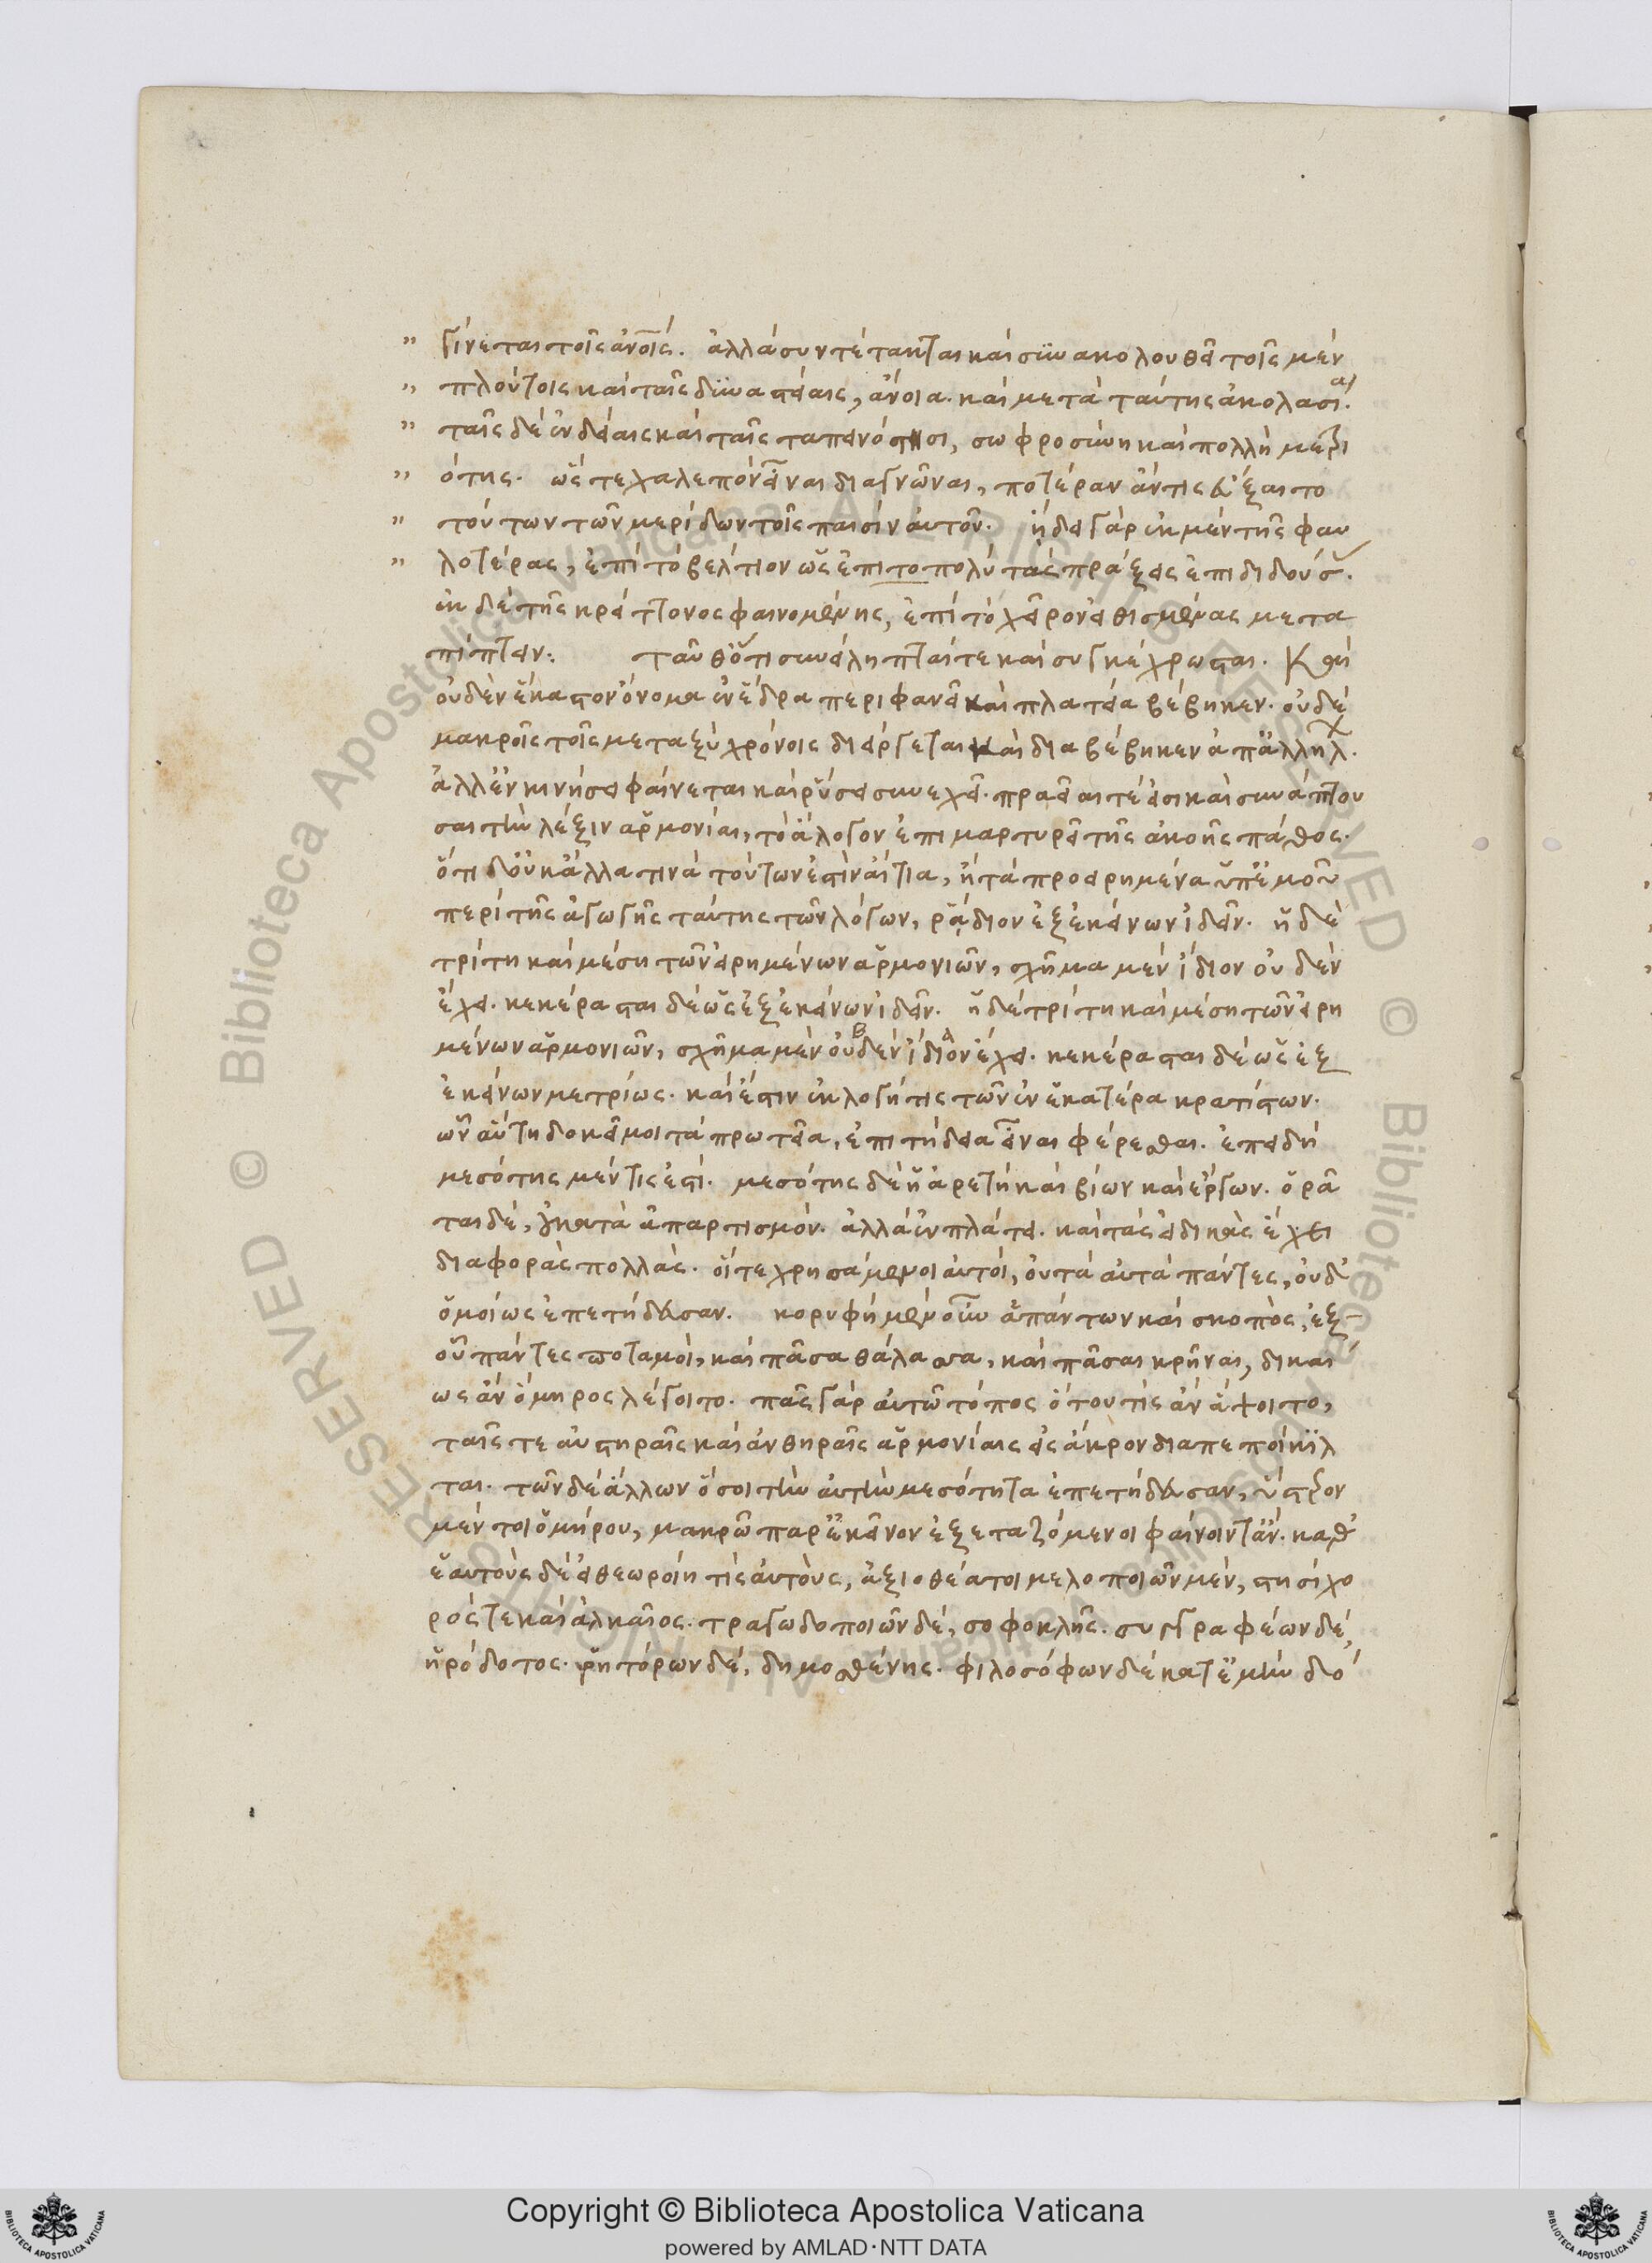 γίνεται τοῖς ἀνοις. ἀλλὰ συντέτακται καὶ συνακολουθεῖ τοῖς μὲν
πλούτοις καὶ ταῖς δυναστείαις, ἄνοια. καὶ μετὰ ταύτης ἀκολασία.
ταῖς δὲ ἐνδείαις καὶ ταῖς ταπεινότησι, σωφροσύνη καὶ πολλὴ μετρι
ότης. ὥστε χαλεπὸν εἶναι διαγνῶναι, ποτέραν ἄν τις δέξαιτο
τούτων τῶν μερίδων τοῖς παισὶν αὐτοῦ. ἤδει γὰρ ἐκ μὲν τῆς φαυ
λοτέρας, ἐπὶ τὸ βέλτιον ὡς ἐπιτοπολὺ τὰς πράξεις ἐπιδιδούσ.
ἐκ δὲ τῆς κρείττονος φαινομένης, ἐπὶ τὸ χεῖρον εἰθισμένας μετα
πίπτειν. ταῦθ ὅτι συνείληπταί τε καὶ συγκέχρωσται. Καὶ
οὐδὲν ἕκαστον ὄνομα ἐν ἕδρα περιφανεῖ καὶ πλατεία βέβηκεν. οὐδὲ
μακροῖς τοῖς μεταξὺ χρόνοις διείργεται καὶ διαβέβηκεν ἀπ ἀλλήλ.
ἀλλ ἐν κινήσει φαίνεται καὶ ῥύσει συνεχεῖ. πραεῖαι τέ εἰσι καὶ συνάπτου
σαι τὴν λέξιν ἁρμονίαι, τὸ ἄλογον ἐπιμαρτυρεῖ τῆς ἀκοῆς πάθος.
ὅτι δ οὐκ ἄλλα τινὰ τούτων ἐστὶν αἴτια, ἢ τὰ προειρημένα ὑπ ἐμοῦ
περὶ τῆς ἀγωγῆς ταύτης τῶν λόγων, ῥᾴδιον ἐξ ἐκείνων ἰδεῖν. ἡ δὲ
τρίτη καὶ μέση τῶν εἰρημένων ἁρμονιῶν, σχῆμα μὲν ἴδιον οὐδὲν
ἔχει. κεκέρασται δὲ ὡς ἐξ ἐκείνων ἰδεῖν. ἡ δὲ τρίτη καὶ μέση τῶν εἰρη
μένων ἁρμονιῶν, σχῆμα μὲν οὐδὲν ἴδιον ἔχει. κεκέρασται δὲ ὡς ἐξ
ἐκείνων μετρίως. καὶ ἔστιν ἐκλογή τις τῶν ἐν ἑκατέρα κρατίστων.
ὧν αὕτη δοκεῖ μοι τὰ πρωτεῖα, ἐπιτηδεία εἶναι φέρεσθαι. ἐπειδὴ
μεσότης μέν τις ἐστί. μεσότης δὲ ἡ ἀρετὴ καὶ βίων καὶ ἔργων. ὁρᾶ
ται δὲ, κατὰ ἀπαρτισμόν. ἀλλὰ ἐν πλάτει. καὶ τὰς εἰδικὰς ἔχει
διαφορὰς πολλάς. οἵ τε χρησάμενοι αὐτοί, οὐ τὰ αὐτὰ πάντες, οὐδ
ὁμοίως ἐπετήδευσαν. κορυφὴ μὲν οὖν ἁπάντων καὶ σκοπὸς, ἐξ
οὗ πάντες ποταμοὶ, καὶ πᾶσα θάλασσα, καὶ πᾶσαι κρῆναι, δικαί
ως ἂν ὅμηρος λέγοιτο. πᾶς γὰρ αὐτῶ τόπος ὅτου τὶς ἂν ἅψοιτο,
ταῖς τε αὐστηραῖς καὶ ἀνθηραῖς ἁρμονίαις εἰς ἄκρον διαπεποίκιλ
ται. τῶν δὲ ἄλλων ὅσοι τὴν αὐτὴν μεσότητα ἐπετήδευσαν, ὕστερον
μέν τοι ὁμήρου, μακρῶ παρ ἐκεῖνον ἐξεταζόμενοι φαίνοιντ ἄν. καθ
ἑαυτοὺς δὲ εἰ θεωροίη τὶς αὐτοὺς, ἀξιοθέατοι μελοποιῶν μὲν, στησίχο
ρός τε καὶ ἀλκαῖος. τραγωδοποιῶν δὲ, σοφοκλῆς. συγγραφέων δὲ,
ἡρόδοτος. ῥητόρων δὲ, δημοσθένης. φιλοσόφων δὲ κατ ἐμὴν δό
Copyright © Biblioteca Apostolica Vaticana
powered by AMLAD·NTT DATA